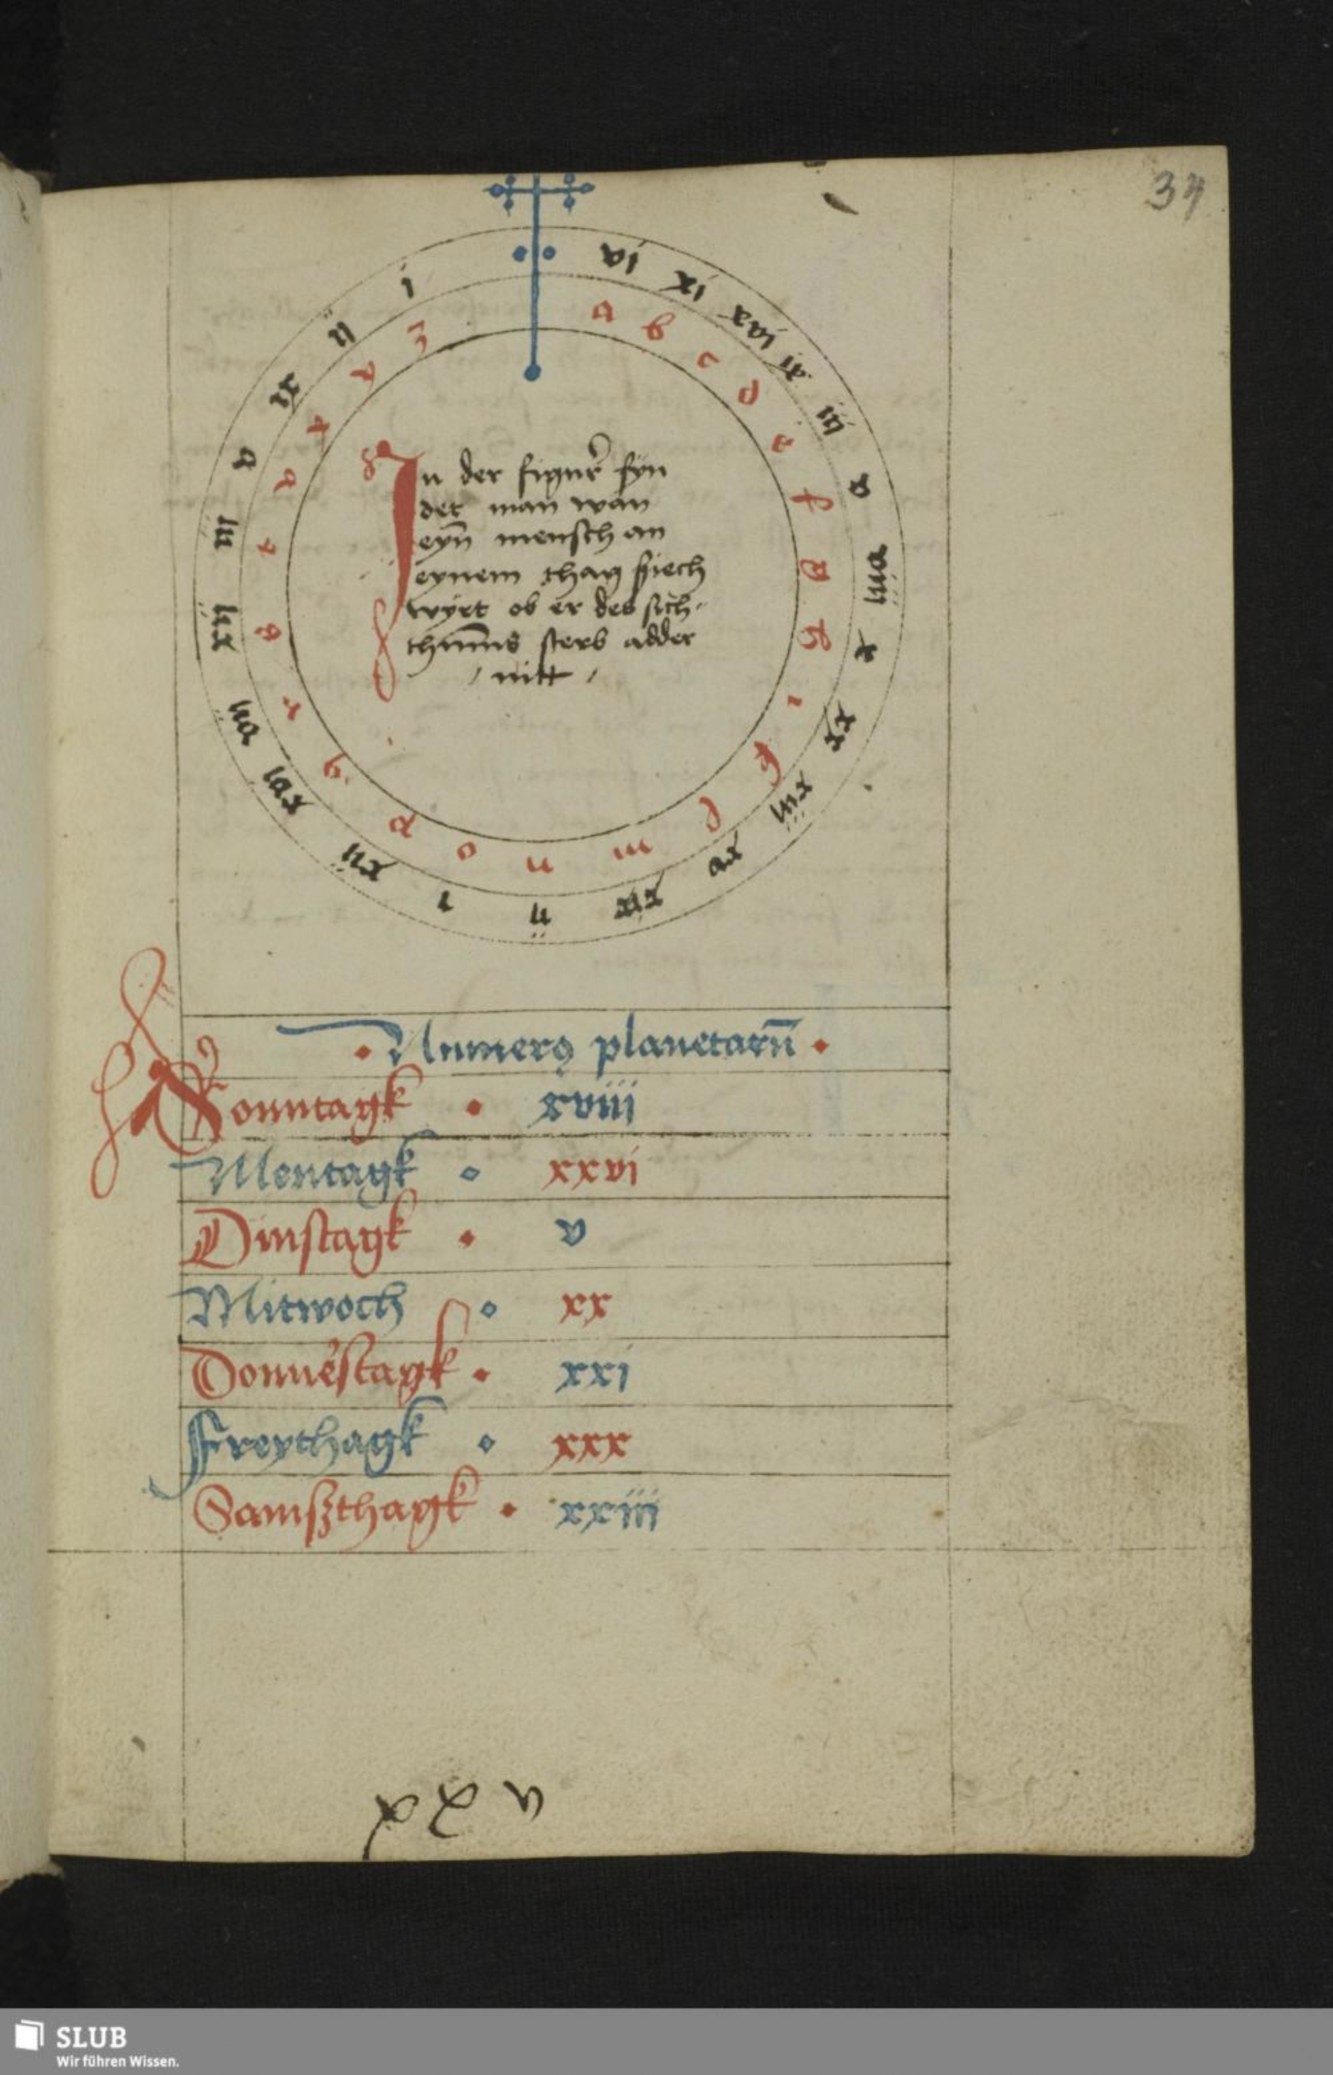 37
vi xi xvi ix iii v viii x xx xiiii xv xix ii i xii xvi vii xii iii v ix ii i
a b c d e f g h i k l m n o p q r s t v x y z
In der figur̄ fyn
det man wan
eyn̄ mensch an
eynem thag siech
wyrt ob er des sich-
thum̄s sterb adder
/ nitt /
· Numerꝯ planetarū ·
Sonntagk · xviii
Mentagk · xxvi
Dinstagk · v
Mitwoch · xx
Donnerstagk · xxi
Freythagk · xxx
Samßthagk · xxiii
SLUB
Wir führen Wissen.